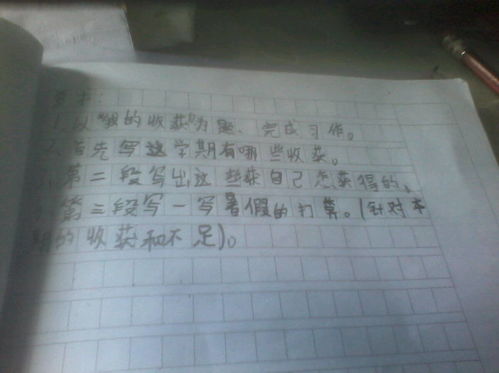 要求:
1.以“我的收获”为题,完成习作。
2.首先写这学期有哪些收获。
第二段写出这些获自己怎获得的。
第三段写一写暑假的打算。(针对本
期的收获和不足)。